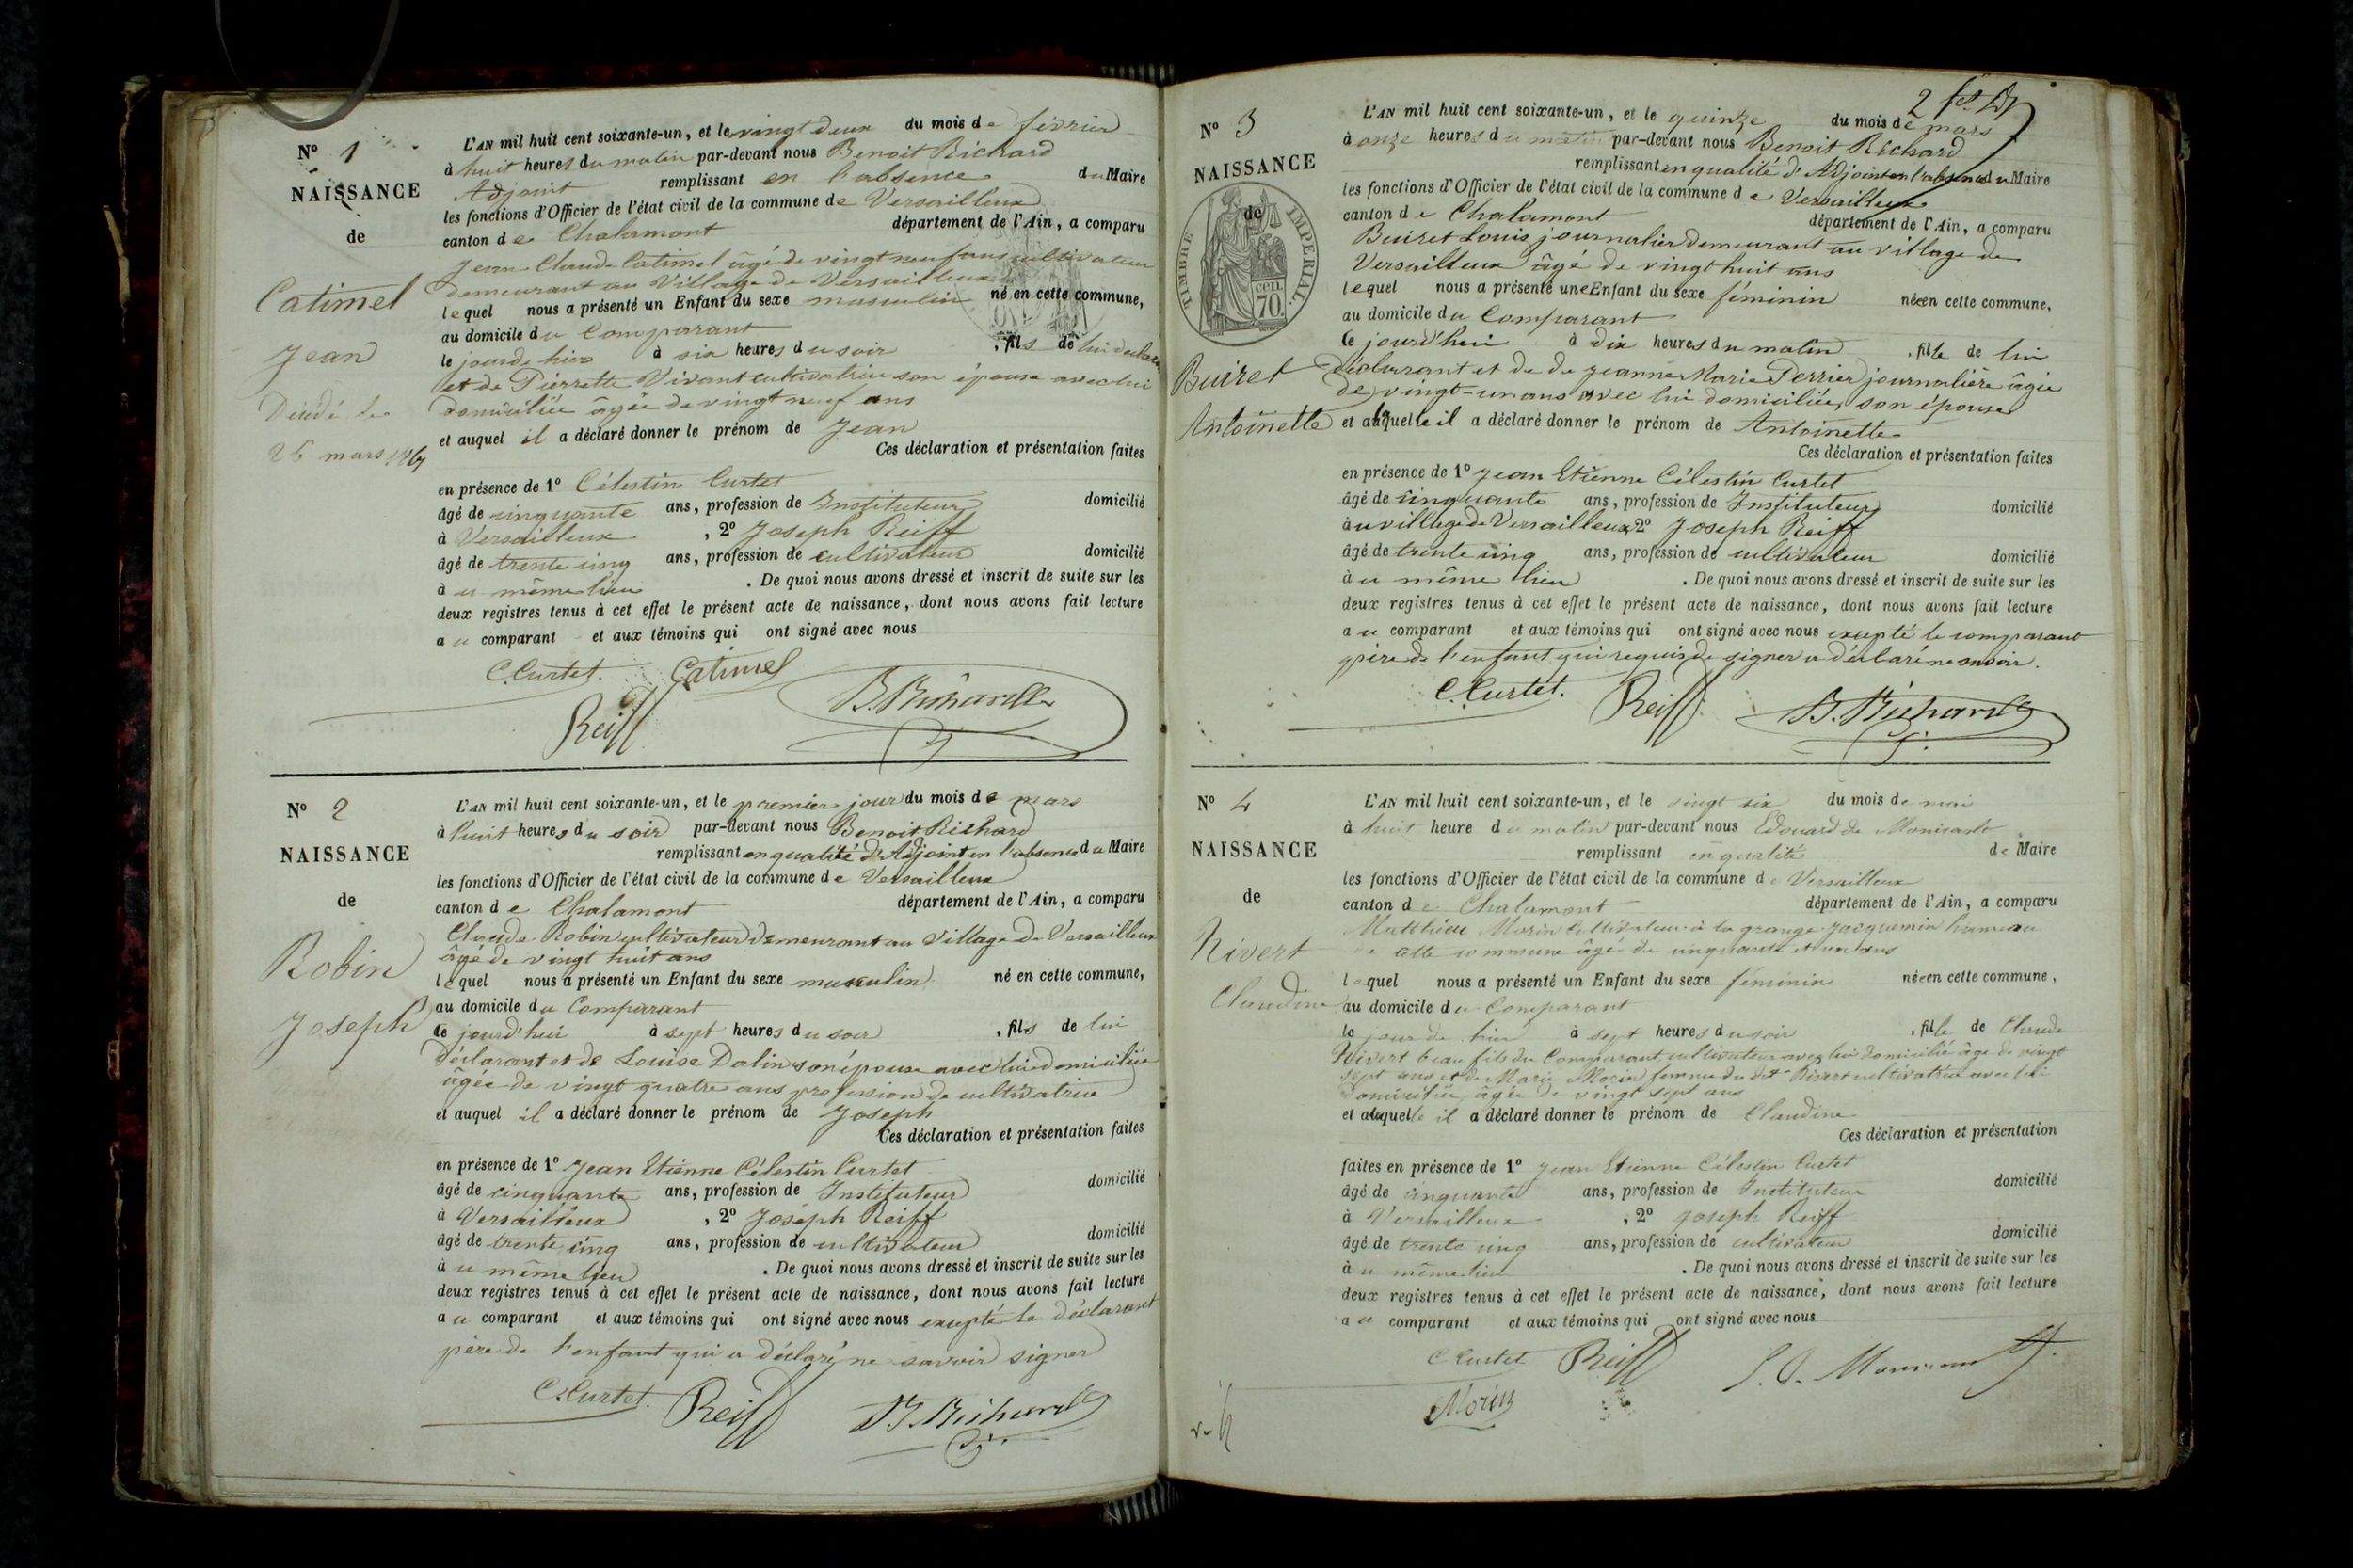 N° 1
NAISSANCE
de
Catimel
Jean
Décédé le
26 mars 1867
L'AN mil huit cent soixante-un, et le vingt deux du mois de février
à huit heures du matin par-devant nous Benoit Richard
Adjoint remplissant en l'absence du Maire
les fonctions d'Officier de l'état civil de la commune de Versailleux
canton de Chalamont département de l'Ain, a comparu
Jean Claude Catimel âgé de vingt neuf ans cultivateur
demeurant au Village de Versailleux
lequel nous a présenté un Enfant du sexe masculin né en cette commune,
au domicile du Comparant
le jour de hier à six heures du soir , fils de lui déclarant
et de Pierrette Vivant cultivatrice son épouse avec lui
domiciliée âgée de vingt neuf ans
et auquel il a déclaré donner le prénom de Jean
Ces déclaration et présentation faites
en présence de 1° Célestin Curtet
âgé de cinquante ans, profession de Instituteur domicilié
à Versailleux , 2° Joseph Reiff
âgé de trente cinq ans, profession de cultivateur domicilié
au même lieu . De quoi nous avons dressé et inscrit de suite sur les
deux registres tenus à cet effet le présent acte de naissance, dont nous avons fait lecture
au comparant et aux témoins qui ont signé avec nous
C. Curtet. Catimel
Reiff B. Richard
N° 2
NAISSANCE
de
Robin
Joseph
L'AN mil huit cent soixante-un, et le premier jour du mois de mars
à huit heures du soir par-devant nous Benoit Richard
remplissant en qualité d'Adjoint en l'absence du Maire
les fonctions d'Officier de l'état civil de la commune de Versailleux
canton de Chalamont département de l'Ain, a comparu
Claude Robin cultivateur demeurant au Village de Versailleux
âgé de vingt huit ans
lequel nous a présenté un Enfant du sexe masculin né en cette commune,
au domicile du Comparant
ce jourd'hui à sept heures du soir , fils de lui
déclarant et de Louise Dalin son épouse avec lui domiciliée
âgée de vingt quatre ans profession de cultivatrice
et auquel il a déclaré donner le prénom de Joseph
Ces déclaration et présentation faites
en présence de 1° Jean Etienne Célestin Curtet
âgé de cinquante ans, profession de Instituteur domicilié
à Versailleux , 2° Joseph Reiff
âgé de trente cinq ans, profession de cultivateur domicilié
au même lieu . De quoi nous avons dressé et inscrit de suite sur les
deux registres tenus à cet effet le présent acte de naissance, dont nous avons fait lecture
au comparant et aux témoins qui ont signé avec nous excepté le déclarant
père de l'enfant qui a déclaré ne savoir signer
C. Curtet. Reiff B. Richard
N° 3
NAISSANCE
de
TIMBRE IMPERIAL.
cen.
70
Buiret
Antoinette
L'AN mil huit cent soixante-un, et le quinze du mois de mars
à onze heures du matin par-devant nous Benoit Richard
remplissant en qualité d'Adjoint en l'absence du Maire
les fonctions d'Officier de l'état civil de la commune de Versailleux
canton de Chalamont département de l'Ain, a comparu
Buiret Louis journalier demeurant au village de
Versailleux âgé de vingt huit ans
lequel nous a présenté une Enfant du sexe féminin née en cette commune,
au domicile du Comparant
ce jourd'hui à dix heures du matin , fille de lui
déclarant et de de Jeanne Marie Perrier journalière âgée
de vingt-un ans avec lui domiciliée, son épouse
et à laquelle il a déclaré donner le prénom de Antoinette
Ces déclaration et présentation faites
en présence de 1° Jean Etienne Célestin Curtet
âgé de cinquante ans, profession de Instituteur domicilié
au village de Versailleux, 2° Joseph Reiff
âgé de trente cinq ans, profession de cultivateur domicilié
au même lieu . De quoi nous avons dressé et inscrit de suite sur les
deux registres tenus à cet effet le présent acte de naissance, dont nous avons fait lecture
au comparant et aux témoins qui ont signé avec nous excepté le comparant
père de l'enfant qui requis de signer a déclaré ne savoir.
C. Curtet. Reiff. B. Richard
N° 4
NAISSANCE
de
Nivert
Claudine
L'AN mil huit cent soixante-un, et le vingt six du mois de mai
à huit heure du matin par-devant nous Edouard de Monicault
remplissant en qualité de Maire
les fonctions d'Officier de l'état civil de la commune de Versailleux
canton de Chalamont département de l'Ain, a comparu
Matthieu Morin cultivateur à la grange Jacquemin hameau
de cette commune âgé de cinquante et un ans
lequel nous a présenté un Enfant du sexe féminin née en cette commune,
au domicile du Comparant
le jour de hier à sept heures du soir , fille de Claude
Nivert beau fils du Comparant cultivateur avec lui domicilié âgé de vingt
sept ans et de Marie Morin femme du dit Nivert cultivatrice avec lui
domiciliée, âgée de vingt sept ans
et à laquelle il a déclaré donner le prénom de Claudine
Ces déclaration et présentation
faites en présence de 1° Jean Etienne Célestin Curtet
âgé de cinquante ans, profession de Instituteur domicilié
à Versailleux , 2° Joseph Reiff
âgé de trente cinq ans, profession de cultivateur domicilié
au même lieu . De quoi nous avons dressé et inscrit de suite sur les
deux registres tenus à cet effet le présent acte de naissance, dont nous avons fait lecture
au comparant et aux témoins qui ont signé avec nous
C Curtet Reiff
Morin